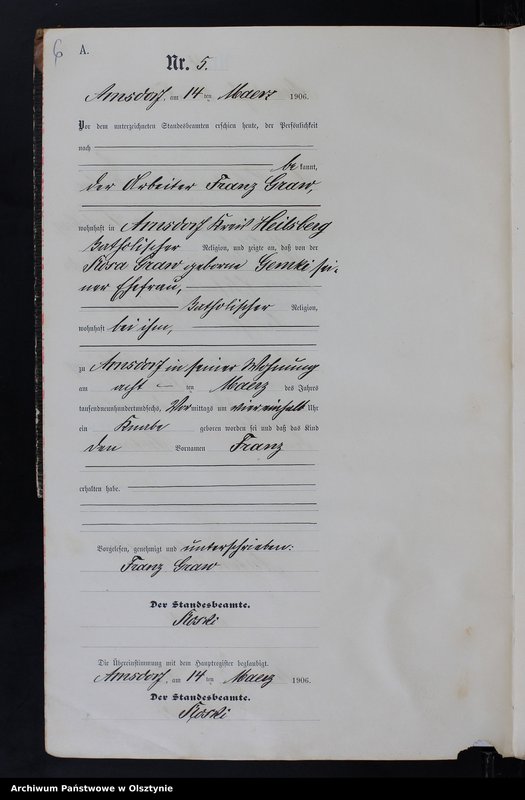 6
A.
Nr. 5.
Arnsdorf, am 14 ten Maerz 1906.
Vor dem unterzeichneten Standesbeamten erschien heute, der Persönlichkeit
nach
be kannt,
der Arbeiter Franz Graw,
wohnhaft in Arnsdorf Kreis Heilsberg
Katholischer Religion, und zeigte an, daß von der
Rosa Graw geborne Gemki sei-
ner Ehefrau,
Katholischer Religion,
wohnhaft bei ihm,
zu Arnsdorf in seiner Wohnung
am acht ten Maerz des Jahrs
tausendneunhundertundsechs, Vormittags um viereinhalb Uhr
ein Knabe geboren worden sei und daß das Kind
den Vornamen Franz
erhalten habe.
Vorgelesen, genehmigt und unterschrieben:
Franz Graw
Der Standesbeamte.
Die Übereinstimmung mit dem Hauptregister beglaubigt.
Arnsdorf, am 14 ten Maerz 1906.
Der Standesbeamte.
Archiwum Państwowe w Olsztynie